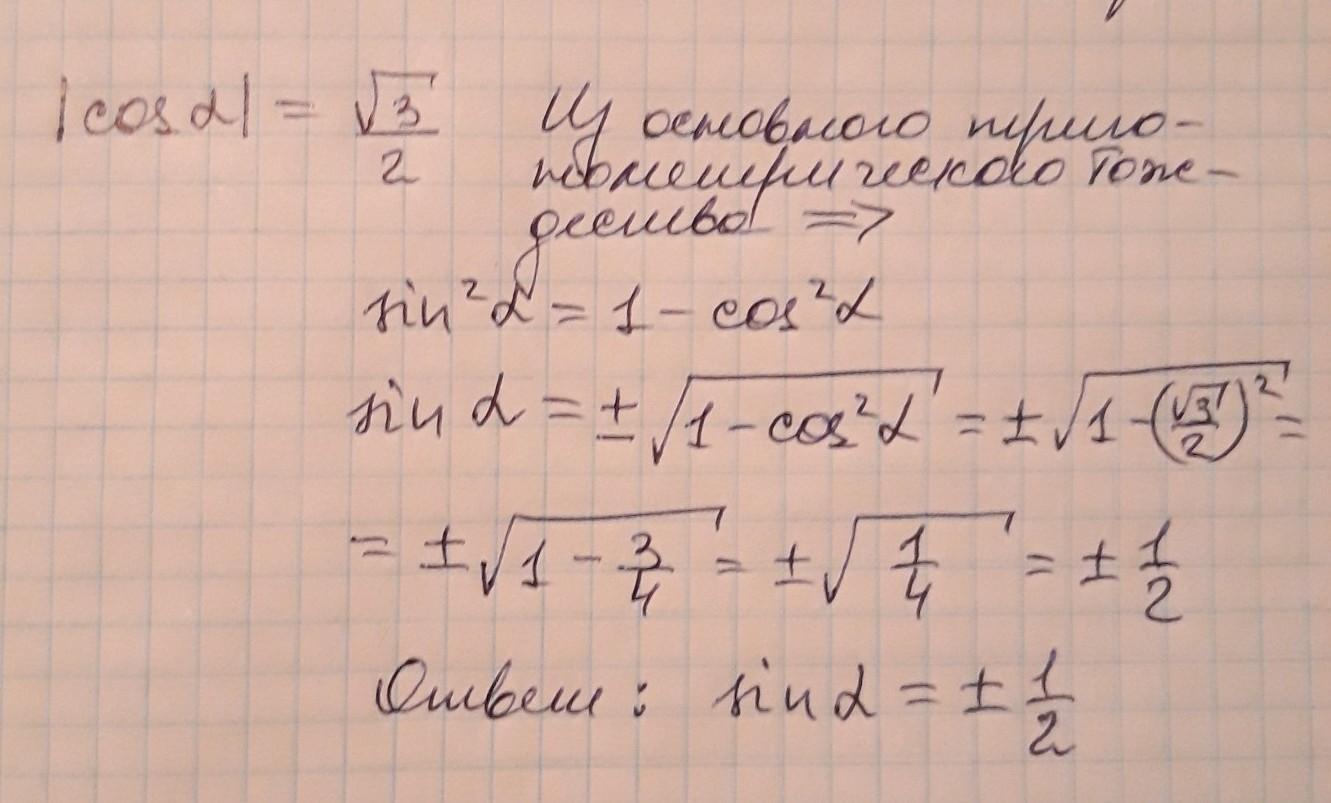 |cos α| = √3/2 Из основного триго-
нометрического тож-
дества =>
sin²α = 1 - cos²α
sin α = ±√(1 - cos²α) = ±√(1 - (√3/2)²) =
= ±√(1 - 3/4) = ±√(1/4) = ± 1/2
Ответ: sin α = ± 1/2